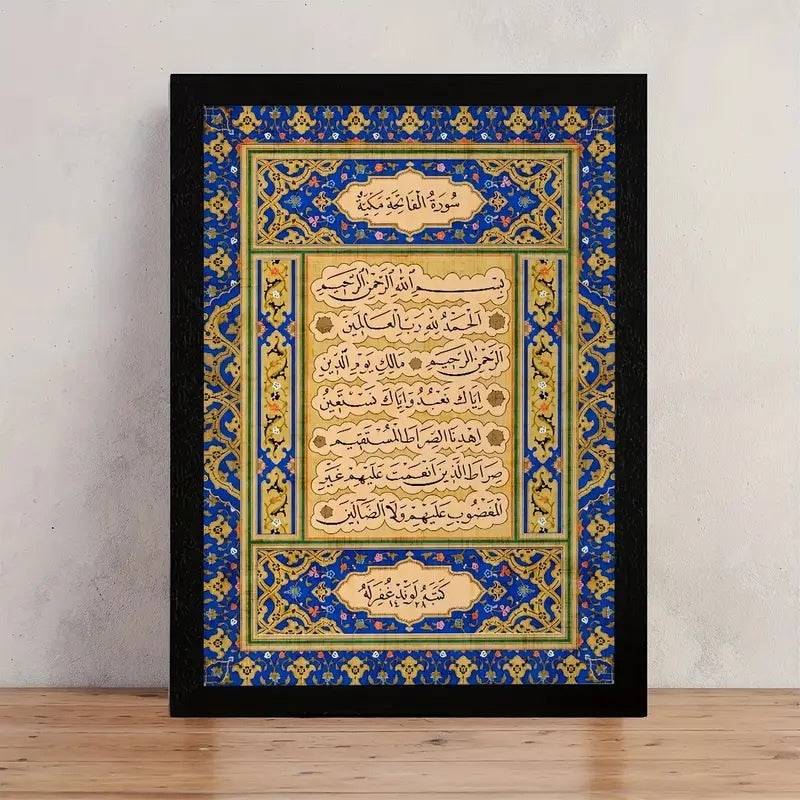 سُورَةُ الْفَاتِحَةِ مَكِّيَّةٌ
بِسْمِ اللهِ الرَّحْمٰنِ الرَّحِيمِ
اَلْحَمْدُ لِلهِ رَبِّ الْعَالَمِينَ
اَلرَّحْمٰنِ الرَّحِيمِ مَالِكِ يَوْمِ الدِّينِ
اِيَّاكَ نَعْبُدُ وَاِيَّاكَ نَسْتَعِينُ
اِهْدِنَا الصِّرَاطَ الْمُسْتَقِيمَ
صِرَاطَ الَّذِينَ اَنْعَمْتَ عَلَيْهِمْ غَيْرِ
الْمَغْضُوبِ عَلَيْهِمْ وَلَا الضَّالِّينَ
كَتَبَهُ لَوَنْد غُفِرَ لَهُ
١٤٢٨